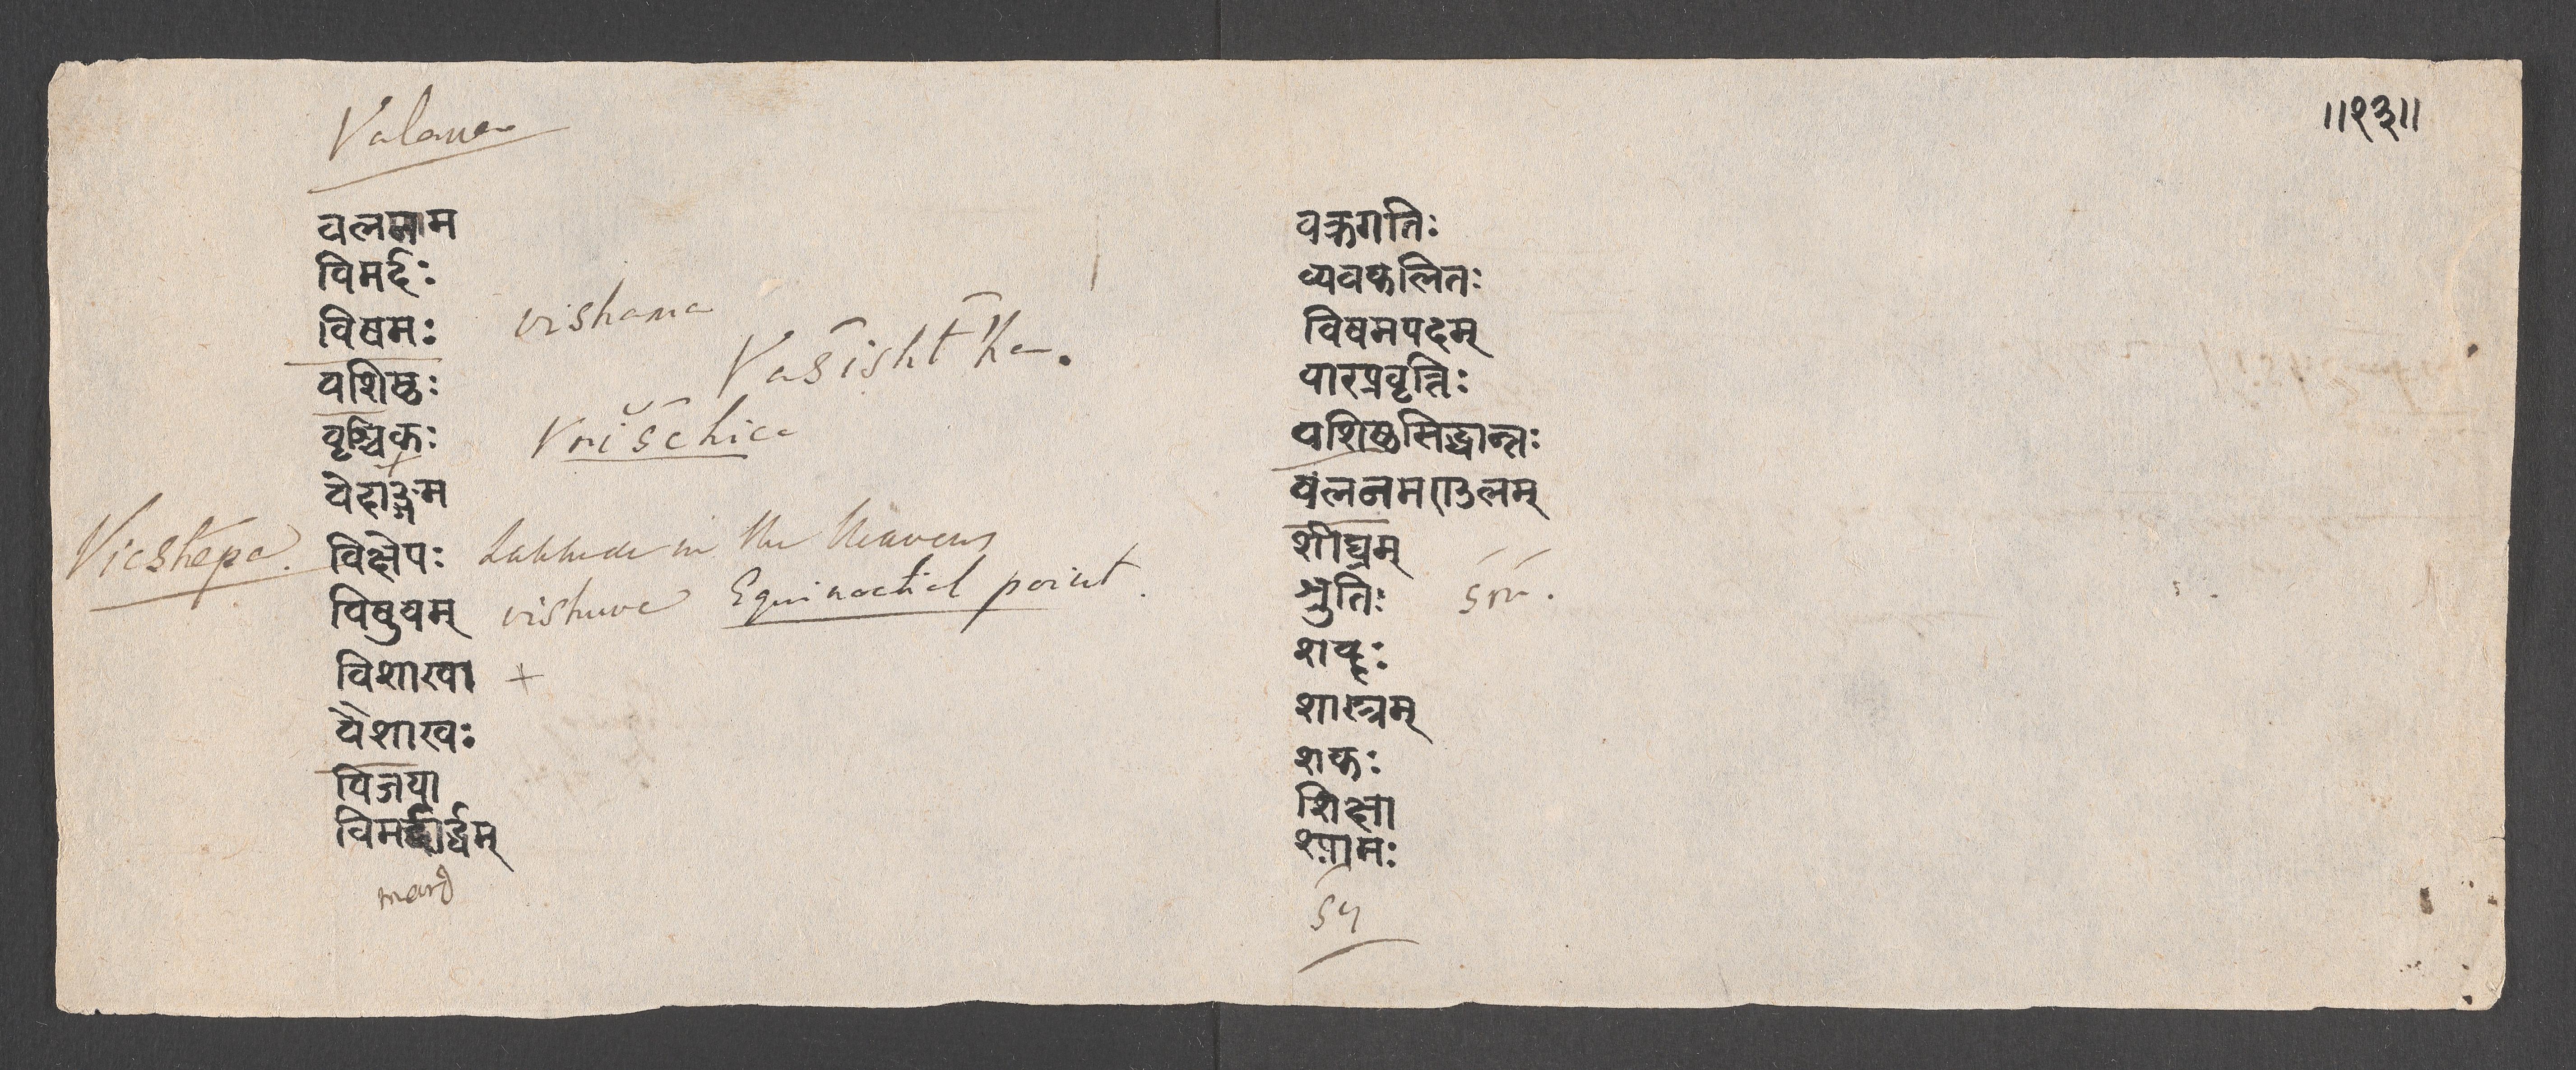 ॥१३॥
Valana
वलनाम
विमर्दः
विषमः vishama
वशिष्ठः Vasishtha.
वृश्चिकः Vrischica
वेदाङ्गम
Vicshepa. विक्षेपः Latitude in the Heavens
विषुवम् vishuva Equinoctial point.
विशाखा +
वैशाखः
विजया
विमर्द्दार्द्धम्
mard
वक्रगतिः
व्यवकलितः
विषमपदम्
वारप्रवृत्तिः
वशिष्ठसिद्धान्तः
वलनमण्डलम्
शीघ्रम्
श्रुतिः sru.
शास्त्रम्
शकः
शिक्षा